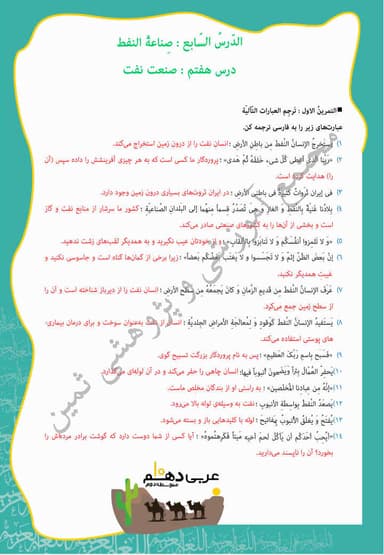 الدَّرسُ السّابع : صِناعَةُ النِّفط
درس هفتم : صنعت نفت
■التمرینُ الاول : تَرجِمِ العِباراتِ التّالیَّةِ
عبارت‌های زیر را به فارسی ترجمه کن.
۱) یَستَخرِجُ الإنسانُ النِّفطَ مِن باطِنِ الأرضِ ؛ انسان نفت را از درون زمین استخراج می‌کند.
۲) «رَبُّنَا الَّذي أَعْطى كُلَّ شَيءٍ خَلقَهُ ثُمَّ هَدى» ؛ پروردگار ما کسی است که به هر چیزی آفرینشش را داده سپس (آن
را) هدایت کرده است.
۳) في إيران ثَرَواتٌ كثيرةٌ في باطِنِ الأرضِ ؛ در ایران ثروت‌های بسیاری درون زمین وجود دارد.
۴) بِلادُنا غَنيَّةٌ بِالنِّفطِ وَ الغازِ وَ هِيَ تُصَدِّرُ قِسماً مِنهُما إلى البُلدانِ الصِّناعيَّةِ ؛ کشور ما سرشار از منابع نفت و گاز
است و بخشی از آن‌ها را به کشورهای صنعتی صادر می‌کند.
۵) «وَ لا تَلمِزوا أنفُسَكُم وَ لا تَنابَزوا بِالألقابِ» ؛ و از خودتان عیب نگیرید و به همدیگر لقب‌های زشت ندهید.
۶) إنَّ بَعضَ الظَّنِّ إثمٌ وَ لا تَجَسَّسوا وَ لا يَغتَب بَعضُكُم بَعضاً» ؛ زیرا برخی از گمان‌ها گناه است و جاسوسی نکنید و
غیبت همدیگر نکنید.
۷) عَرَفَ الإنسانُ النِّفطَ مِن قَديمِ الزَّمانِ وَ كانَ يَجمَعُهُ مِن سَطحِ الأرضِ ؛ انسان نفت را از دیرباز شناخته است و آن را
از سطح زمین جمع می‌کرد.
۸) يَستَفيدُ الإنسانُ النِّفطَ كَوَقودٍ وَ لِمُعالَجَةِ الأمراضِ الجِلديَّةِ ؛ انسان از نفت به‌عنوان سوخت و برای درمان بیماری‌-
های پوستی استفاده می‌کند.
۹) «فَسَبِّح بِاسمِ رَبِّكَ العَظيمِ» ؛ پس به نام پروردگار بزرگت تسبیح گوی.
۱۰) يَحفِرُ العُمّالُ بِئراً وَ يَضَعونَ أُنبوباً فيها؛ انسان چاهی را حفر می‌کند و در آن لوله‌ای می‌گذارد.
۱۱) «إنَّهُ مِن عِبادِنا المُخلَصينَ» ؛ به راستی او از بندگان مخلص ماست.
۱۲) يَصعَدُ النِّفطُ بِواسِطَةِ الأُنبوبِ ؛ نفت به وسیله‌ی لوله بالا می‌رود.
۱۳) يُفتَحُ وَ يُغلَقُ الأُنبوبُ بِمَفاتيحَ ؛ لوله با کلیدهایی باز و بسته می‌شود.
۱۴) «أيُحِبُّ أحَدُكُم أن يَأكُلَ لَحمَ أخيهِ مَيتاً فَكَرِهتُموهُ» ؛ آیا کسی از شما دوست دارد که گوشت برادر مرده‌اش را
بخورد؟ آن را ناپسند می‌دارید.
عربی دهم
متوسطه دوم